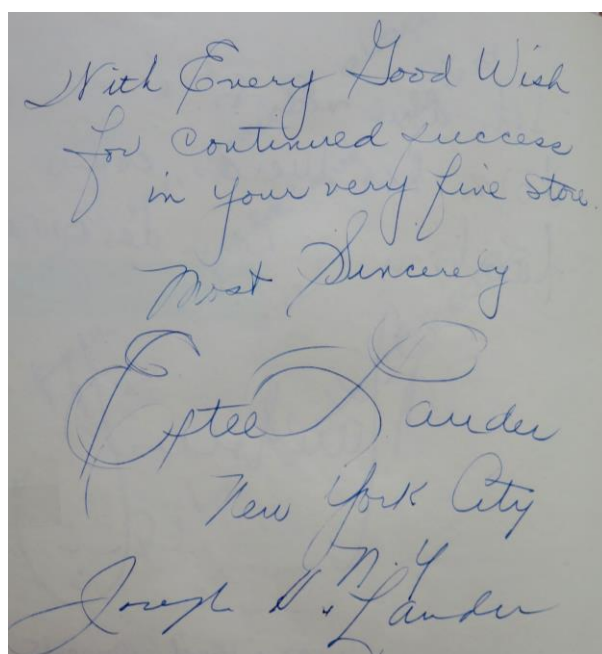 With Every Good Wish
for continued success
in your very fine store.
Most Sincerely
Estee Lauder
New York City
N.Y
Joseph H. Lauder